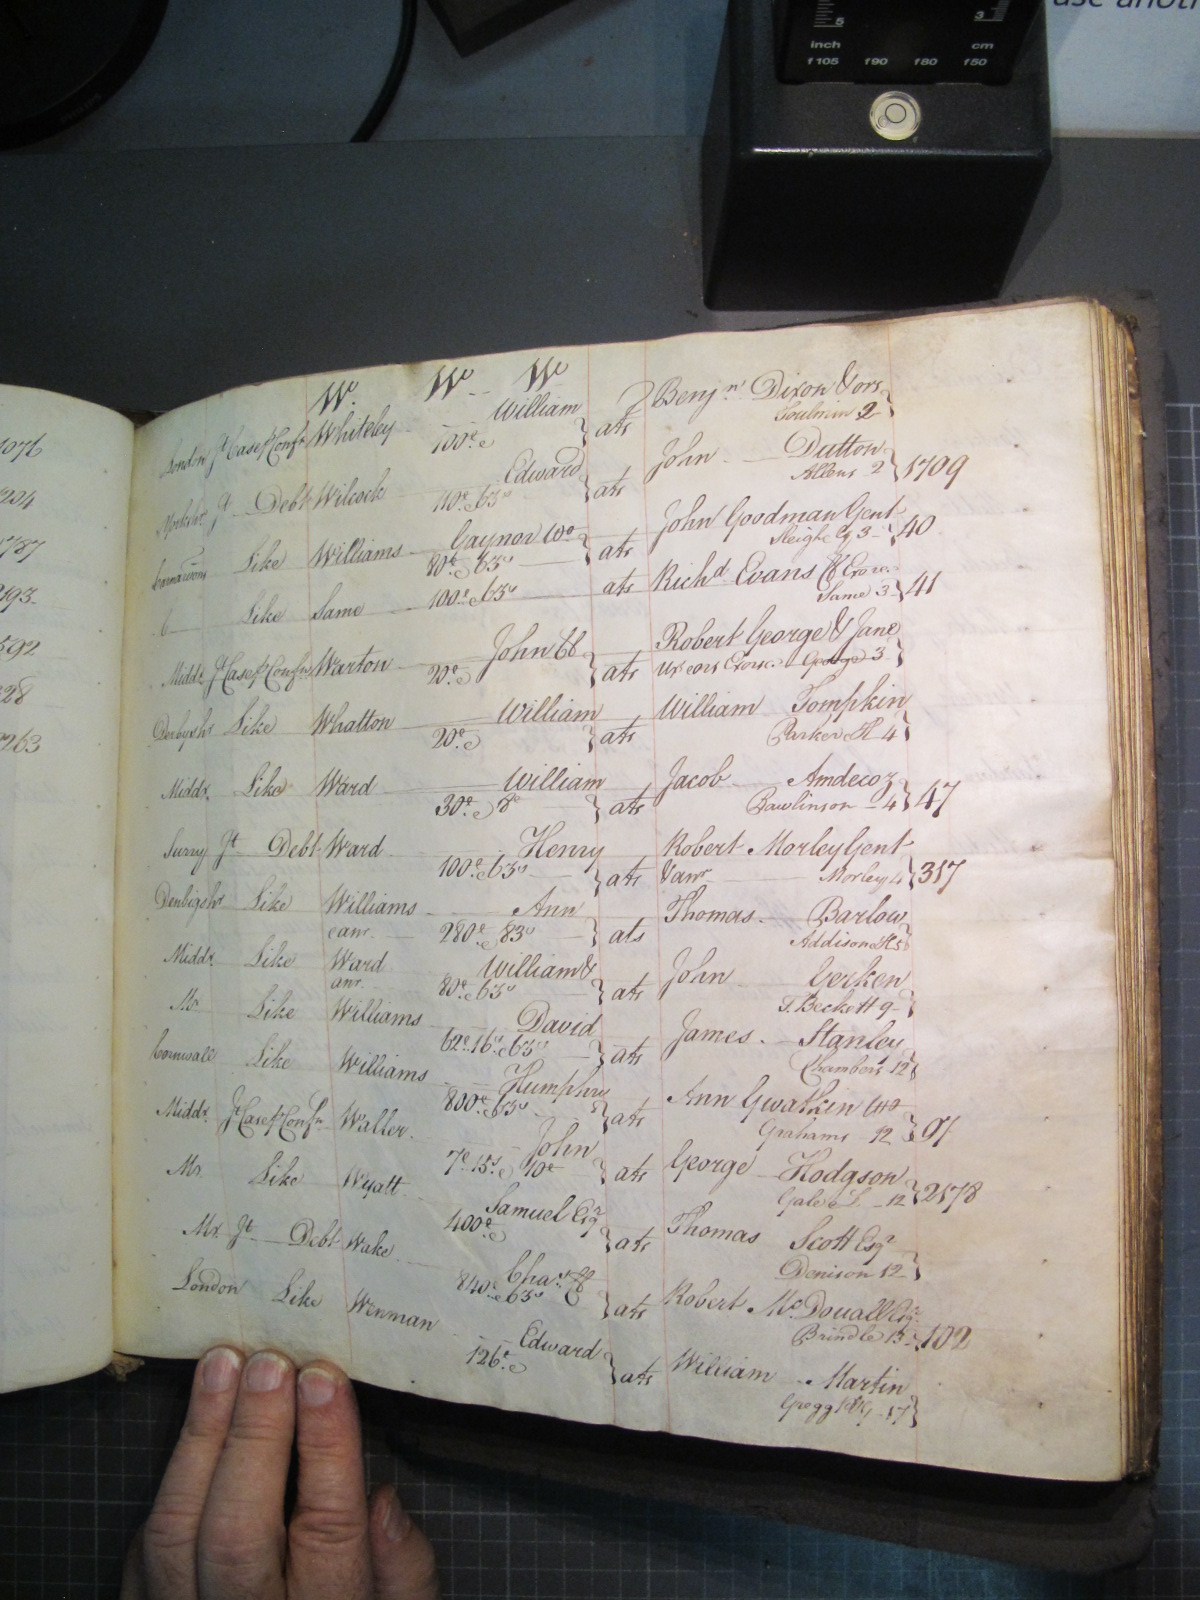 use anoth
5 3
inch cm
f105 f90 f80 f50
1071
204
787
293
592
328
263
Wc Wc Wc
London Jt Case pr Confn Whiteley William 100£ ats Benjn Dixon & ors
Toulmin 2
Yorkshr Jt Debt Wilcock Edward ats John Dutton
Allens 2 1709
Like Williams Gaynor Wo ats John Goodman Gent
Sleigh 3 40
Like Same 100£ 63s ats Richd Evans & Exors
Same 3 41
Middx Jt Case pr Confn Warton John 20£ ats Robert George & Jane
Ux eors Exors George 3
Derbyshr Like Whatton William 20£ ats William Tompkin
Parker H 4
Middx Like Ward William 30£ ats Jacob Amdecoz
Rawlinson 4 47
Surry Jt Debt Ward Henry 100£ 63s ats Robert Morley Gent
& anr Morley 4 317
Denbigshr Like Williams Ann ats Thomas Barlow
eanr 280£ 83s Addison
Middx Like Ward William & ats John Gerken
anr 80£ 63s T. Beckett 9
Mx Like Williams David ats James Stanley
62£ 16s 63s Chambers 12
Cornwall Like Williams Humphry ats Ann Gwatkin Wo
800£ 63s Grahams 12 91
Middx Jt Case pr Confn Waller John ats George Hodgson
7£ 15s 10£ Gale 12 2178
Mx Like Wyatt Samuel Esqr ats Thomas Scott Esqr
400£ Denison 12
Mx Jt Debt Wake Chas ats Robert McDouall Esqr
840£ 63s Brindle 15 102
London Like Wenman Edward ats William Martin
126£ Gregg 17